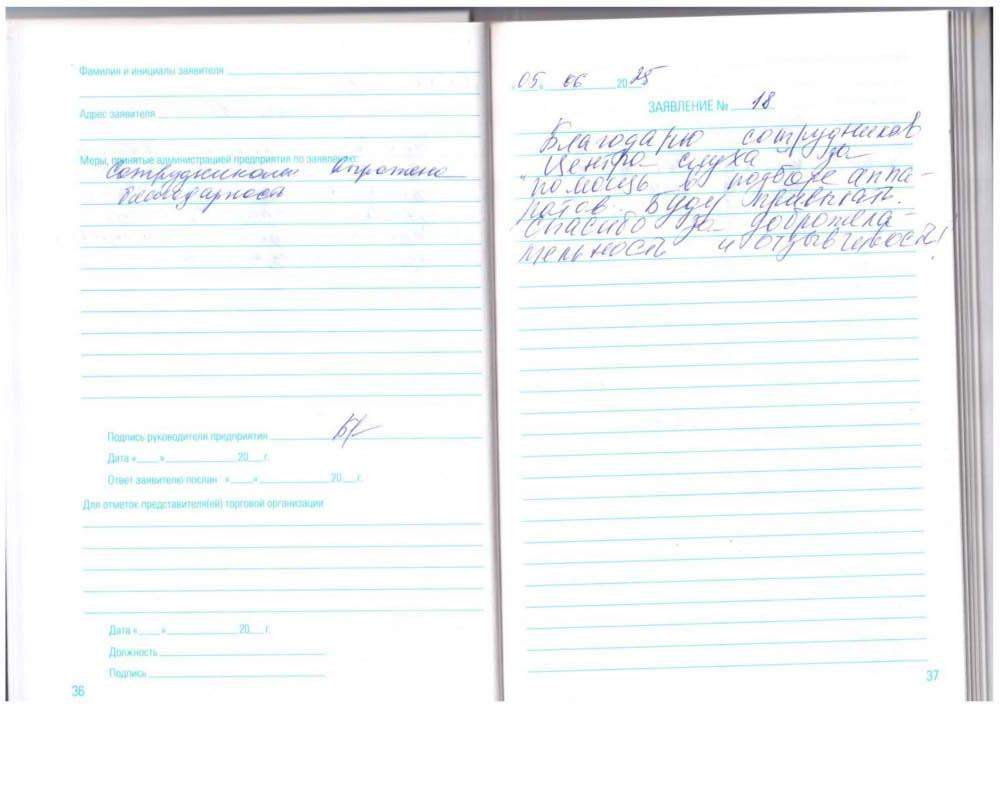 Фамилия и инициалы заявителя
Адрес заявителя
Меры, принятые администрацией предприятия по заявлению:
Сотрудникам выражена
благодарность
Подпись руководителя предприятия
Дата «___»____________20___г.
Ответ заявителю послан «___»____________20___г.
Для отметок представителя(ей) торговой организации
Дата «___»____________20___г.
Должность
Подпись
36
05. 06 2025
ЗАЯВЛЕНИЕ № 18
Благодарю сотрудников
"Центра слуха" за
помощь в подборе аппа-
ратов. Буду привыкать.
Спасибо за доброжела-
тельность и отзывчивость!
37